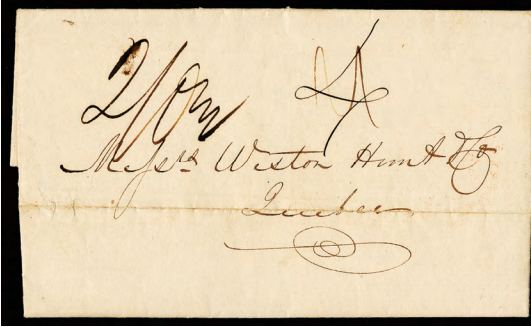 4
Messrs Weston Hunt & Co
Quebec